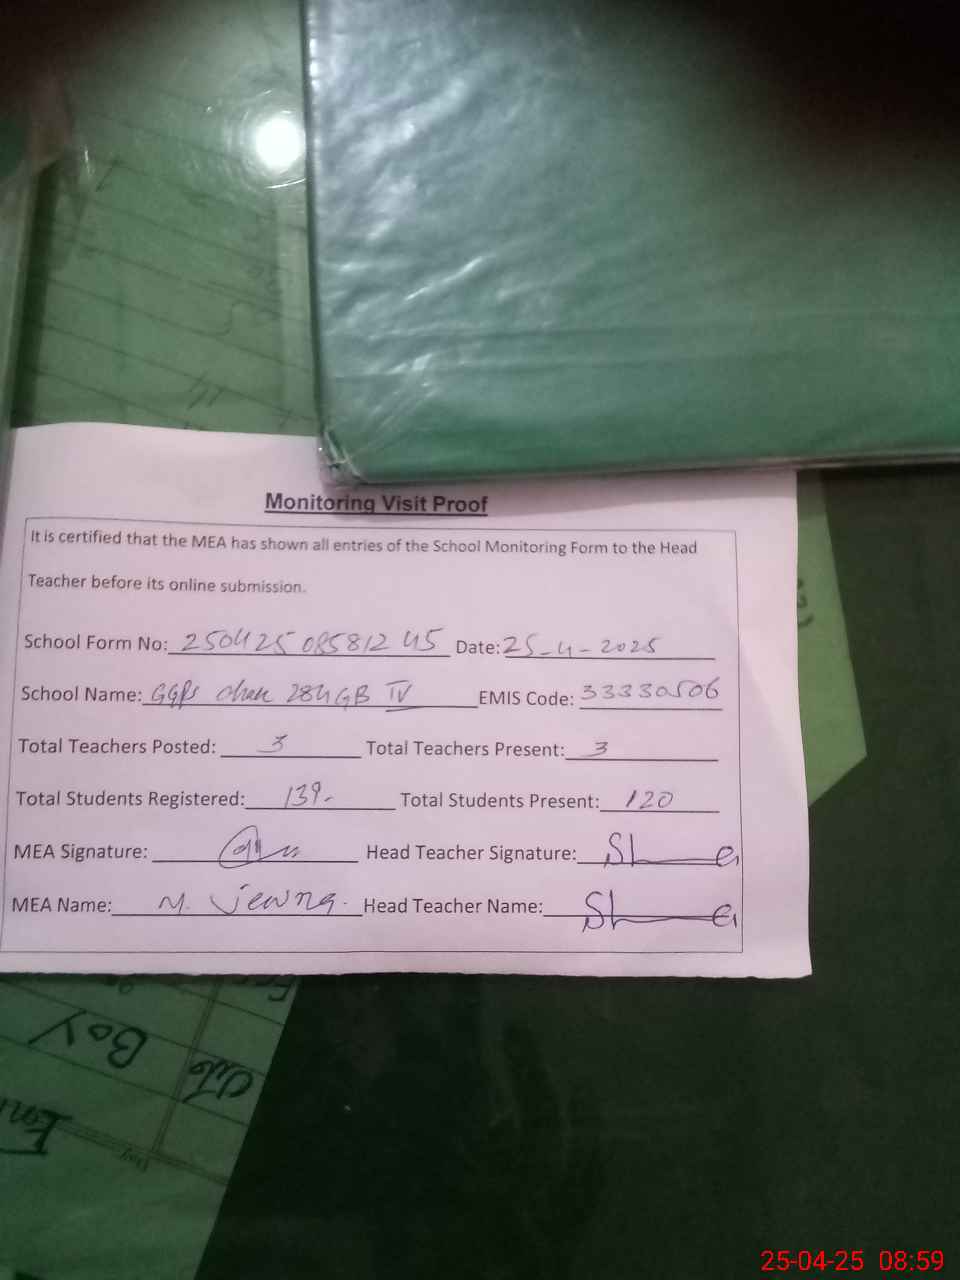 Monitoring Visit Proof
It is certified that the MEA has shown all entries of the School Monitoring Form to the Head
Teacher before its online submission.
School Form No: 25042508581245 Date: 25-4-2025
School Name: GGPS Chak 284 GB IV EMIS Code: 33330506
Total Teachers Posted: 3 Total Teachers Present: 3
Total Students Registered: 139- Total Students Present: 120
MEA Signature: Head Teacher Signature:
MEA Name: M. Head Teacher Name:
BOY
25-04-25 08:59